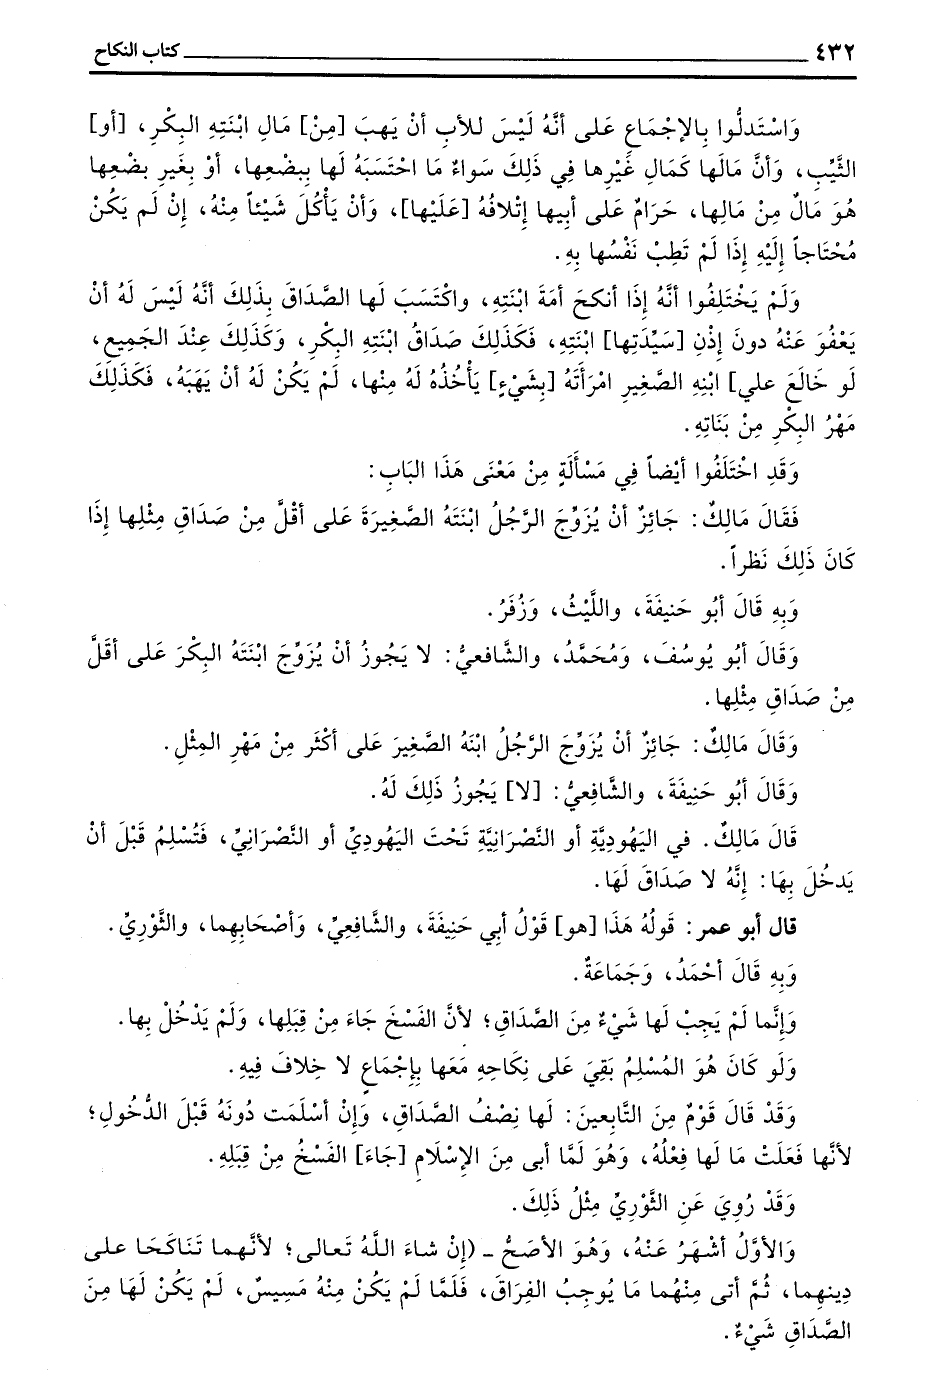 ٤٣٢ كتاب النكاح
وَاسْتَدلُّوا بِالإجْمَاعِ عَلى أنَّهُ لَيْسَ للأبِ أنْ يَهبَ [مِنْ] مَالِ ابْنَتِهِ البِكْرِ، [أو]
الثَّيِّبِ، وَأنَّ مَالَها كَمَالِ غَيْرِها فِي ذَلِكَ سَواءٌ مَا احْتَسَبَهُ لَها بِبضْعِها، أوْ بِغَيرِ بضْعِها
هُوَ مَالٌ مِنْ مَالِها، حَرَامٌ عَلى أبِيها إتْلافُهُ [عَلَيْها]، وَأنْ يَأْكُلَ شَيْئاً مِنْهُ، إنْ لَم يَكُنْ
مُحْتَاجاً إلَيْهِ إذَا لَمْ تَطِبْ نَفْسُها بِهِ.
وَلَمْ يَخْتَلِفُوا أنَّهُ إذَا أنكحَ أمَةَ ابْنَتِهِ، واكْتَسَبَ لَها الصَّدَاقَ بِذَلِكَ أنَّهُ لَيْسَ لَهُ أنْ
يَعْفُوَ عَنْهُ دونَ إذْنِ [سَيِّدَتِها] ابْنَتِهِ، فَكَذَلِكَ صَدَاقُ ابْنَتِهِ البِكْرِ، وَكَذَلِكَ عِنْدَ الجَمِيعِ،
لَو خَالَعَ علي] ابْنِهِ الصَّغِيرِ امْرَأَتَهُ [بِشَيْءٍ] يَأْخُذُهُ لَهُ مِنْها، لَمْ يَكُنْ لَهُ أنْ يَهَبَهُ، فَكَذَلِكَ
مَهْرُ البِكْرِ مِنْ بَنَاتِهِ.
وَقَدِ اخْتَلَفُوا أيْضاً فِي مَسْألَةٍ مِنْ مَعْنَى هَذَا البَابِ:
فَقَالَ مَالِكٌ: جَائِزٌ أنْ يُزَوِّجَ الرَّجُلُ ابْنَتَهُ الصَّغِيرَةَ عَلى أقْلَّ مِنْ صَدَاقِ مِثْلِها إذَا
كَانَ ذَلِكَ نَظراً.
وَبِهِ قَالَ أبُو حَنيفَةَ، واللَّيْثُ، وَزُفَرُ.
وَقَالَ أبُو يُوسُفَ، وَمُحَمَّدُ، والشَّافعيُّ: لا يَجُوزُ أنْ يُزَوِّجَ ابْنَتَهُ البِكْرَ عَلى أقَلَّ
مِنْ صَدَاقِ مِثْلِها.
وَقَالَ مَالِكٌ: جَائِزٌ أنْ يُزَوِّجَ الرَّجُلُ ابْنَهُ الصَّغِيرَ عَلى أكْثَرَ مِنْ مَهْرِ المِثْلِ.
وَقَالَ أبُو حَنِيفَةَ، والشَّافِعِيُّ: [لا] يَجُوزُ ذَلِكَ لَهُ.
قَالَ مَالِكٌ. في اليَهُودِيَّةِ أو النَّصْرَانِيَّةِ تَحْتَ اليَهُودِيِّ أو النَّصْرَانِيِّ، فَتُسْلِمُ قَبْلَ أنْ
يَدخُلَ بِهَا: إنَّهُ لا صَدَاقَ لَهَا.
قال أبو عمر: قَولُهُ هَذَا [هو] قَوْلُ أبِي حَنِيفَةَ، والشَّافِعِيِّ، وَأصْحَابِهِما، والثَّوْرِيِّ.
وَبِهِ قَالَ أحْمَدُ، وَجَمَاعَةٌ.
وَإنَّما لَمْ يَجِبْ لَها شَيْءٌ مِنَ الصَّدَاقِ؛ لأنَّ الفَسْخَ جَاءَ مِنْ قِبَلِها، وَلَمْ يَدْخُلْ بِها.
وَلَو كَانَ هُوَ المُسْلِمُ بَقِيَ عَلى نِكَاحِهِ مَعَها بِإجْمَاعٍ لا خِلافَ فِيهِ.
وَقَدْ قَالَ قَوْمٌ مِنَ التَّابِعينَ: لَها نِصْفُ الصَّدَاقِ، وَإنْ أسْلَمَت دُونَهُ قَبْلَ الدُّخُولِ؛
لأنَّها فَعَلَتْ مَا لَها فِعْلُهُ، وَهُوَ لَمَّا أبى مِنَ الإسْلَامِ [جَاءَ] الفَسْخُ مِنْ قِبَلِهِ.
وَقَدْ رُوِيَ عَنِ الثَّوْرِيِّ مِثْلُ ذَلِكَ.
وَالأوَّلُ أشْهَرُ عَنْهُ، وَهُوَ الأصَحُّ ـ (إنْ شاءَ اللَّهُ تَعالى؛ لأنَّهما تَنَاكَحَا على
دِينِهِما، ثُمَّ أتى مِنْهُما مَا يُوجِبُ الفِرَاقَ، فَلَمَّا لَمْ يَكُنْ مِنْهُ مَسِيسٌ، لَمْ يَكُنْ لَهَا مِنَ
الصَّدَاقِ شَيْءٌ.